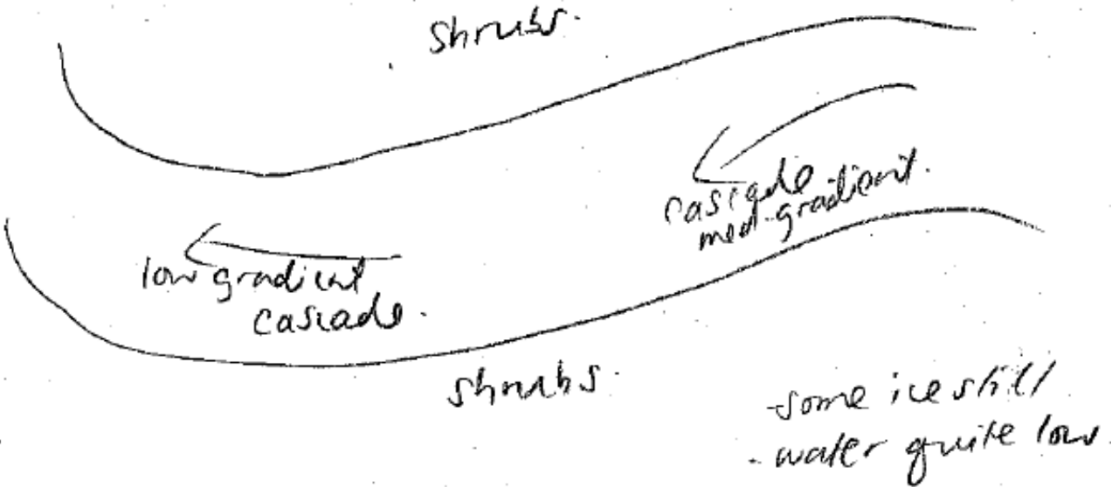 shrubs.
cascade
med-gradient.
low gradient
cascade.
shrubs.
-some ice still
-water quite low.